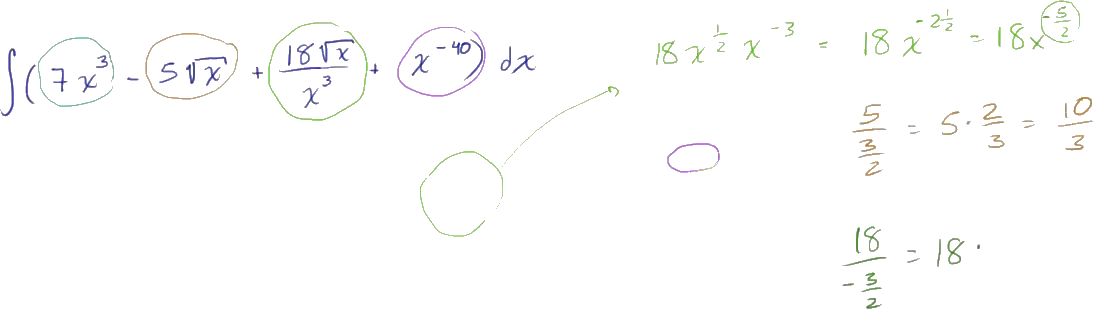 ∫(7x³ - 5√x + 18√x/x³ + x⁻⁴⁰) dx
18x^(1/2) x⁻³ = 18x^(-2 1/2) = 18x^(-5/2)
5/(3/2) = 5 · 2/3 = 10/3
18/(-3/2) = 18 ·